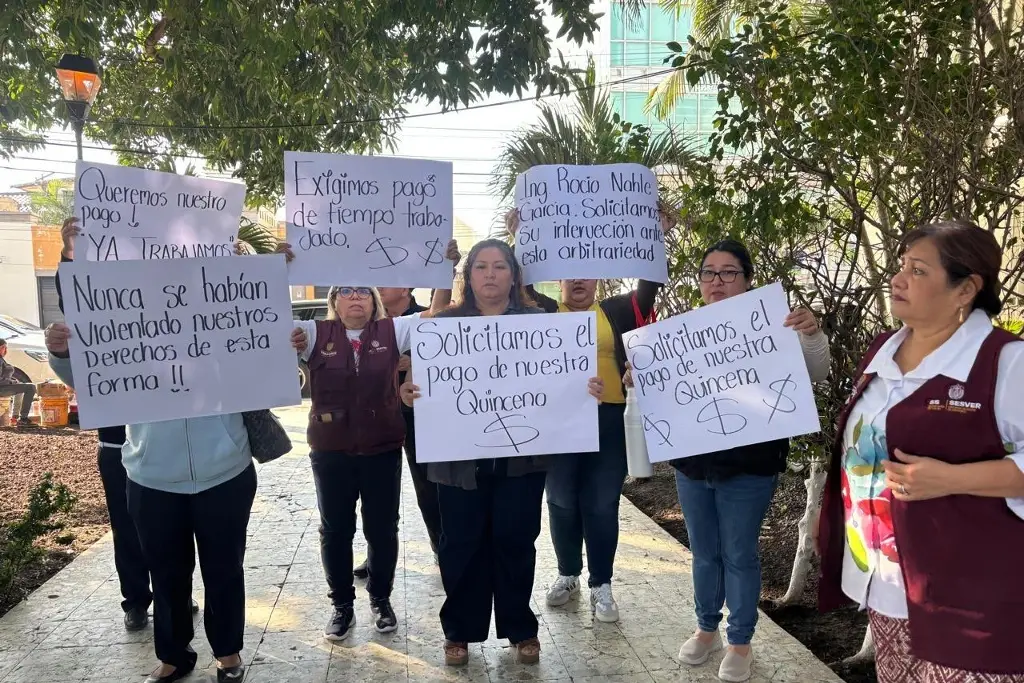 Queremos nuestro
pago !
"YA TRABAJAMOS"
Exigimos pago
de tiempo traba-
jado.
$ $
Ing Rocio Nahle
Garcia. Solicitamos
su intervención ante
esta arbitrariedad
Nunca se habían
Violentado nuestros
Derechos de esta
forma !!
Solicitamos el
pago de nuestra
Quincena
$
Solicitamos el
pago de nuestra
Quincena
$ $ $
SESVER